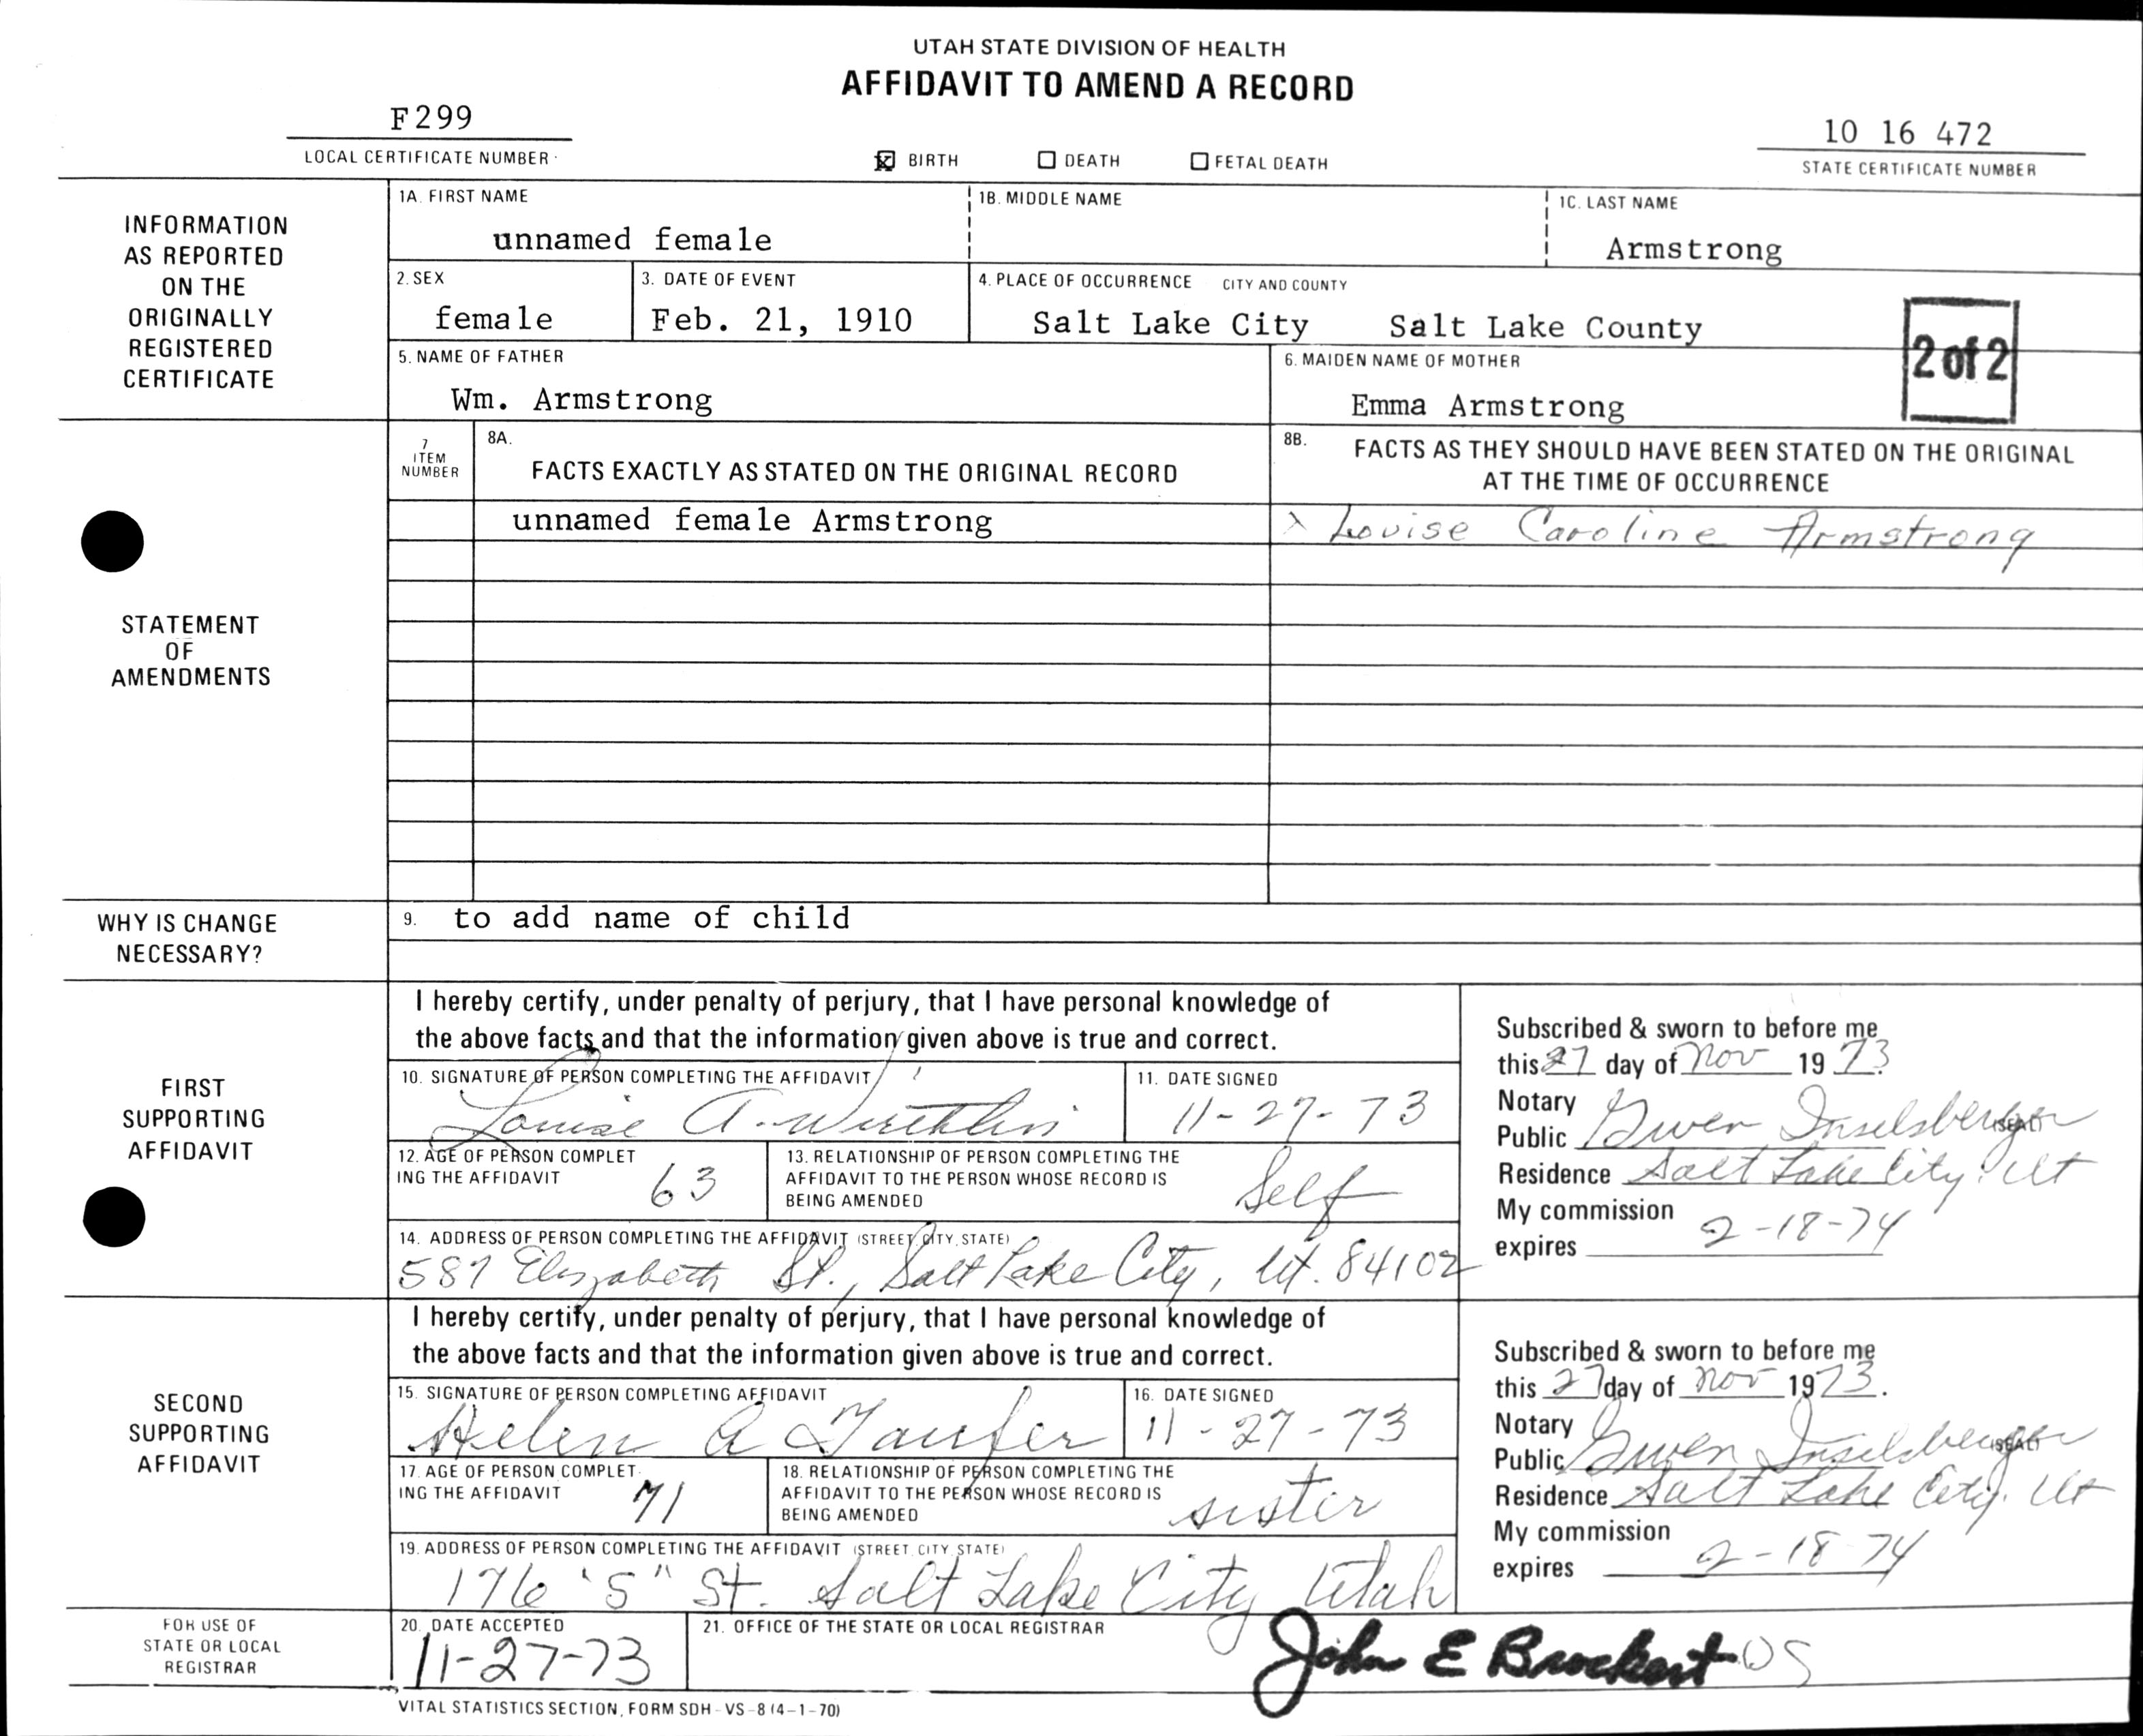 UTAH STATE DIVISION OF HEALTH
AFFIDAVIT TO AMEND A RECORD
F299
LOCAL CERTIFICATE NUMBER
☒ BIRTH ☐ DEATH ☐ FETAL DEATH
10 16 472
STATE CERTIFICATE NUMBER
INFORMATION
AS REPORTED
ON THE
ORIGINALLY
REGISTERED
CERTIFICATE
1A. FIRST NAME
unnamed female
1B. MIDDLE NAME
1C. LAST NAME
Armstrong
2. SEX
female
3. DATE OF EVENT
Feb. 21, 1910
4. PLACE OF OCCURRENCE CITY AND COUNTY
Salt Lake City Salt Lake County
2 of 2
5. NAME OF FATHER
Wm. Armstrong
6. MAIDEN NAME OF MOTHER
Emma Armstrong
STATEMENT
OF
AMENDMENTS
7
ITEM
NUMBER
8A.
FACTS EXACTLY AS STATED ON THE ORIGINAL RECORD
8B. FACTS AS THEY SHOULD HAVE BEEN STATED ON THE ORIGINAL
AT THE TIME OF OCCURRENCE
unnamed female Armstrong
X Louise Caroline Armstrong
WHY IS CHANGE
NECESSARY?
9. to add name of child
FIRST
SUPPORTING
AFFIDAVIT
I hereby certify, under penalty of perjury, that I have personal knowledge of
the above facts and that the information given above is true and correct.
10. SIGNATURE OF PERSON COMPLETING THE AFFIDAVIT
Louise A. Wirthlin
11. DATE SIGNED
11-27-73
12. AGE OF PERSON COMPLET
ING THE AFFIDAVIT
63
13. RELATIONSHIP OF PERSON COMPLETING THE
AFFIDAVIT TO THE PERSON WHOSE RECORD IS
BEING AMENDED
Self
14. ADDRESS OF PERSON COMPLETING THE AFFIDAVIT (STREET, CITY, STATE)
587 Elizabeth St., Salt Lake City, Ut. 84102
Subscribed & sworn to before me
this 27 day of Nov 19 73.
Notary
Public Gwen Inselsberger (SEAL)
Residence Salt Lake City, Ut
My commission
expires 2-18-74
SECOND
SUPPORTING
AFFIDAVIT
I hereby certify, under penalty of perjury, that I have personal knowledge of
the above facts and that the information given above is true and correct.
15. SIGNATURE OF PERSON COMPLETING AFFIDAVIT
Helen A Taufer
16. DATE SIGNED
11-27-73
17. AGE OF PERSON COMPLET
ING THE AFFIDAVIT
71
18. RELATIONSHIP OF PERSON COMPLETING THE
AFFIDAVIT TO THE PERSON WHOSE RECORD IS
BEING AMENDED
sister
19. ADDRESS OF PERSON COMPLETING THE AFFIDAVIT (STREET, CITY, STATE)
176 "S" St. Salt Lake City Utah
Subscribed & sworn to before me
this 27 day of Nov 1973.
Notary
Public Gwen Inselsberger (SEAL)
Residence Salt Lake City, Ut
My commission
expires 2-18-74
FOR USE OF
STATE OR LOCAL
REGISTRAR
20. DATE ACCEPTED
11-27-73
21. OFFICE OF THE STATE OR LOCAL REGISTRAR
John E Brockert
VITAL STATISTICS SECTION, FORM SDH-VS-8 (4-1-70)